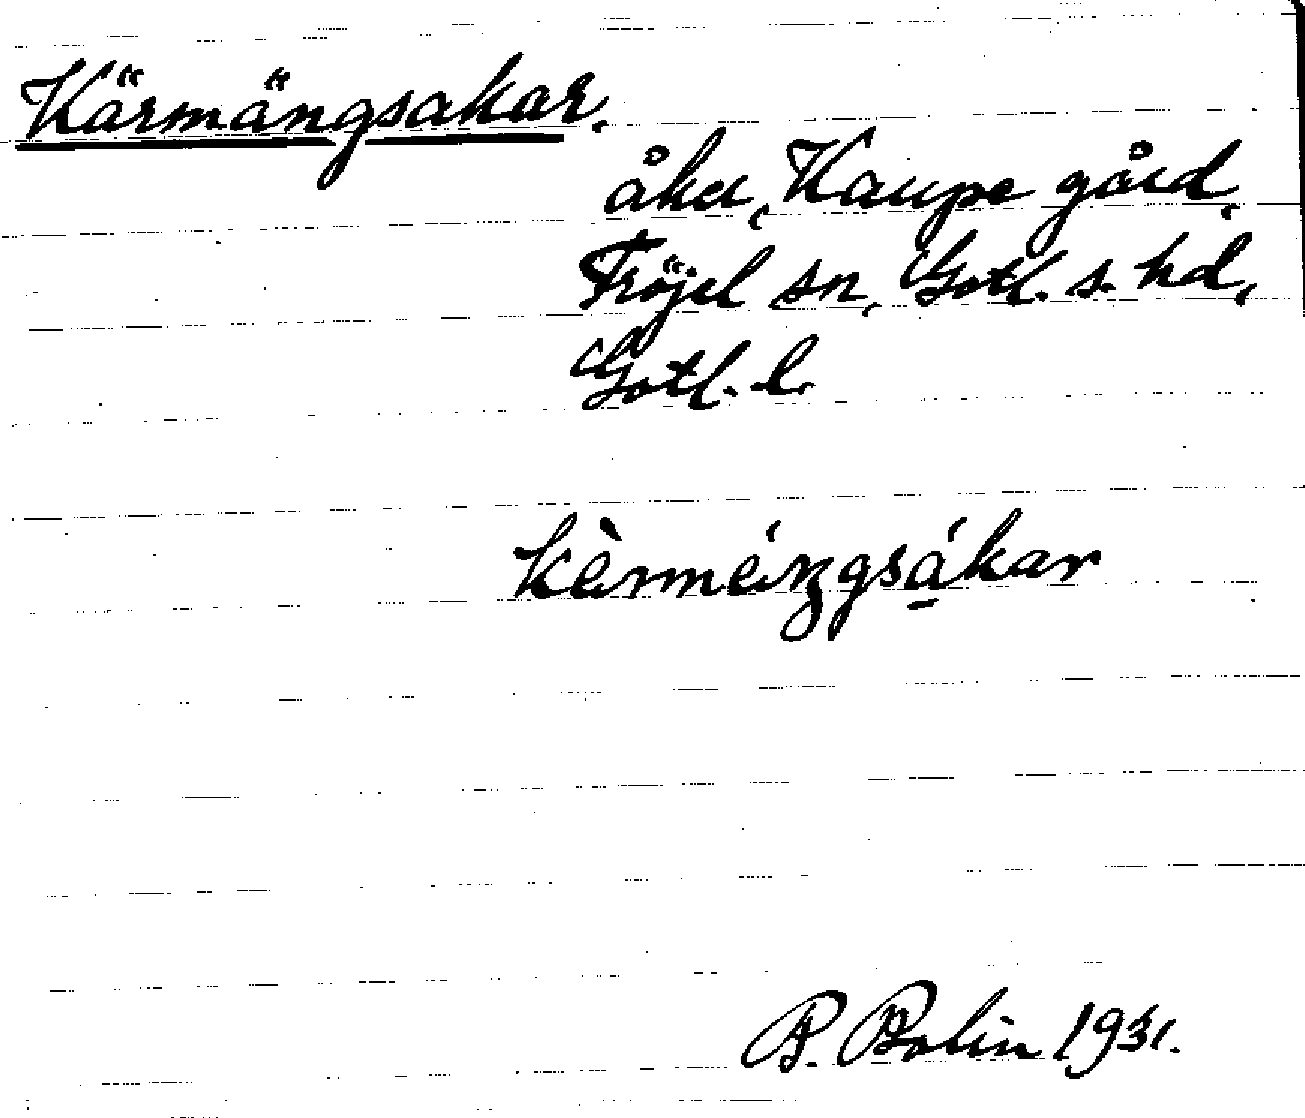 Kärmängsakar.
åker, Kaupe gård,
Fröjel sn, Gotl. s. hd,
Gotl. l.
kèrméŋgsákar
P. Bolin 1931.